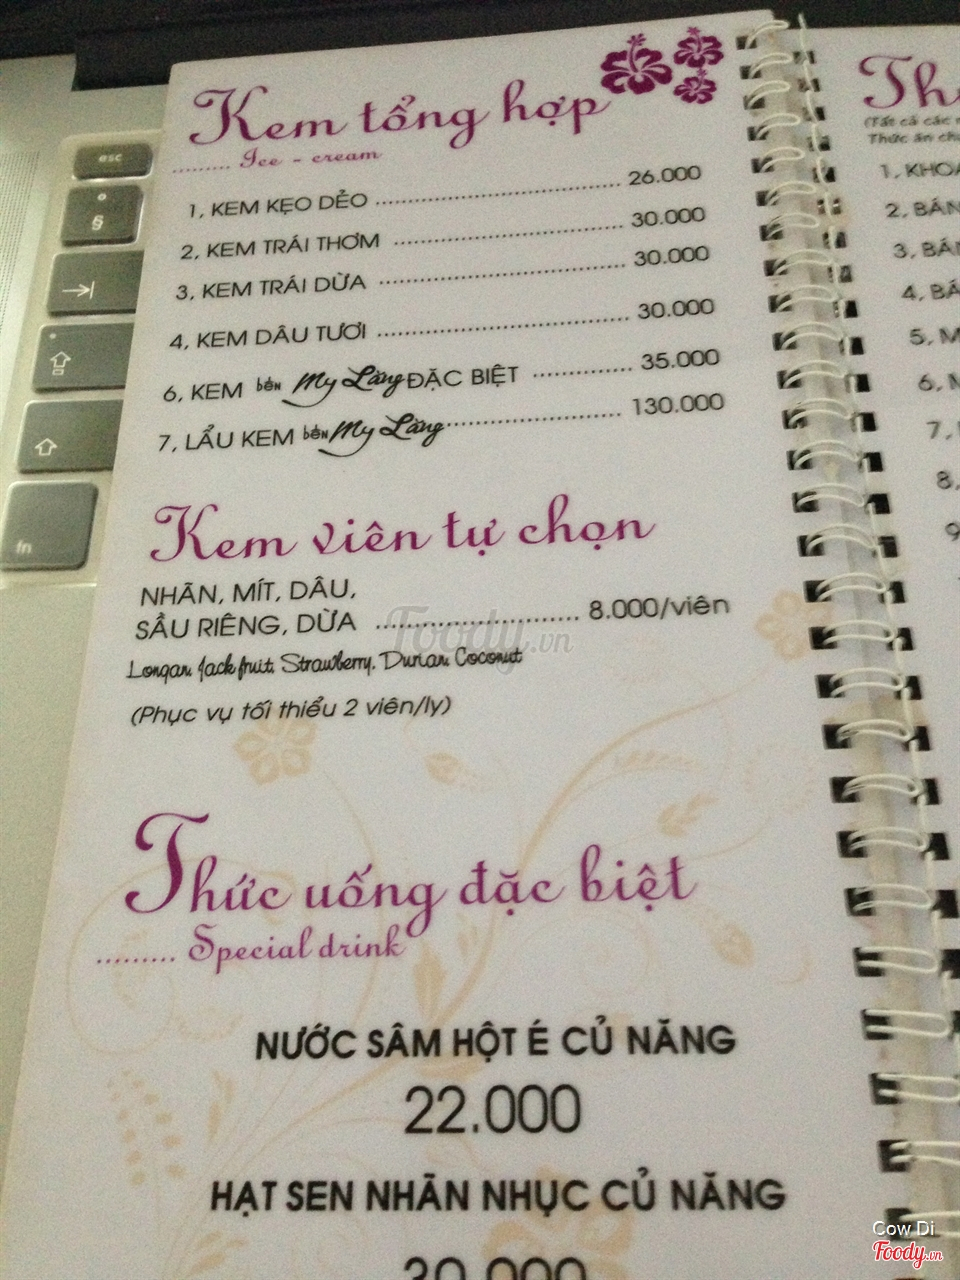 Kem tổng hợp
......... Ice - cream
1, KEM KẸO DẺO ........ 26.000
2, KEM TRÁI THƠM ........ 30.000
3, KEM TRÁI DỪA ........ 30.000
4, KEM DÂU TƯƠI ........ 30.000
6, KEM bến My Lăng ĐẶC BIỆT ........ 35.000
7, LẨU KEM bến My Lăng ........ 130.000
Kem viên tự chọn
NHÃN, MÍT, DÂU,
SẦU RIÊNG, DỪA ........ 8.000/viên
Longan, Jack fruit, Strawberry, Durian, Coconut
(Phục vụ tối thiểu 2 viên/ly)
Thức uống đặc biệt
......... Special drink
NƯỚC SÂM HỘT É CỦ NĂNG
22.000
HẠT SEN NHÃN NHỤC CỦ NĂNG
30.000
(Tất cả các
Thức ăn
1, KHOA
2, BÁN
3, BÁN
4, BÁ
5, M
6, M
7,
8,
9
esc
§
fn
Foody.vn
Cow Di
Foody.vn